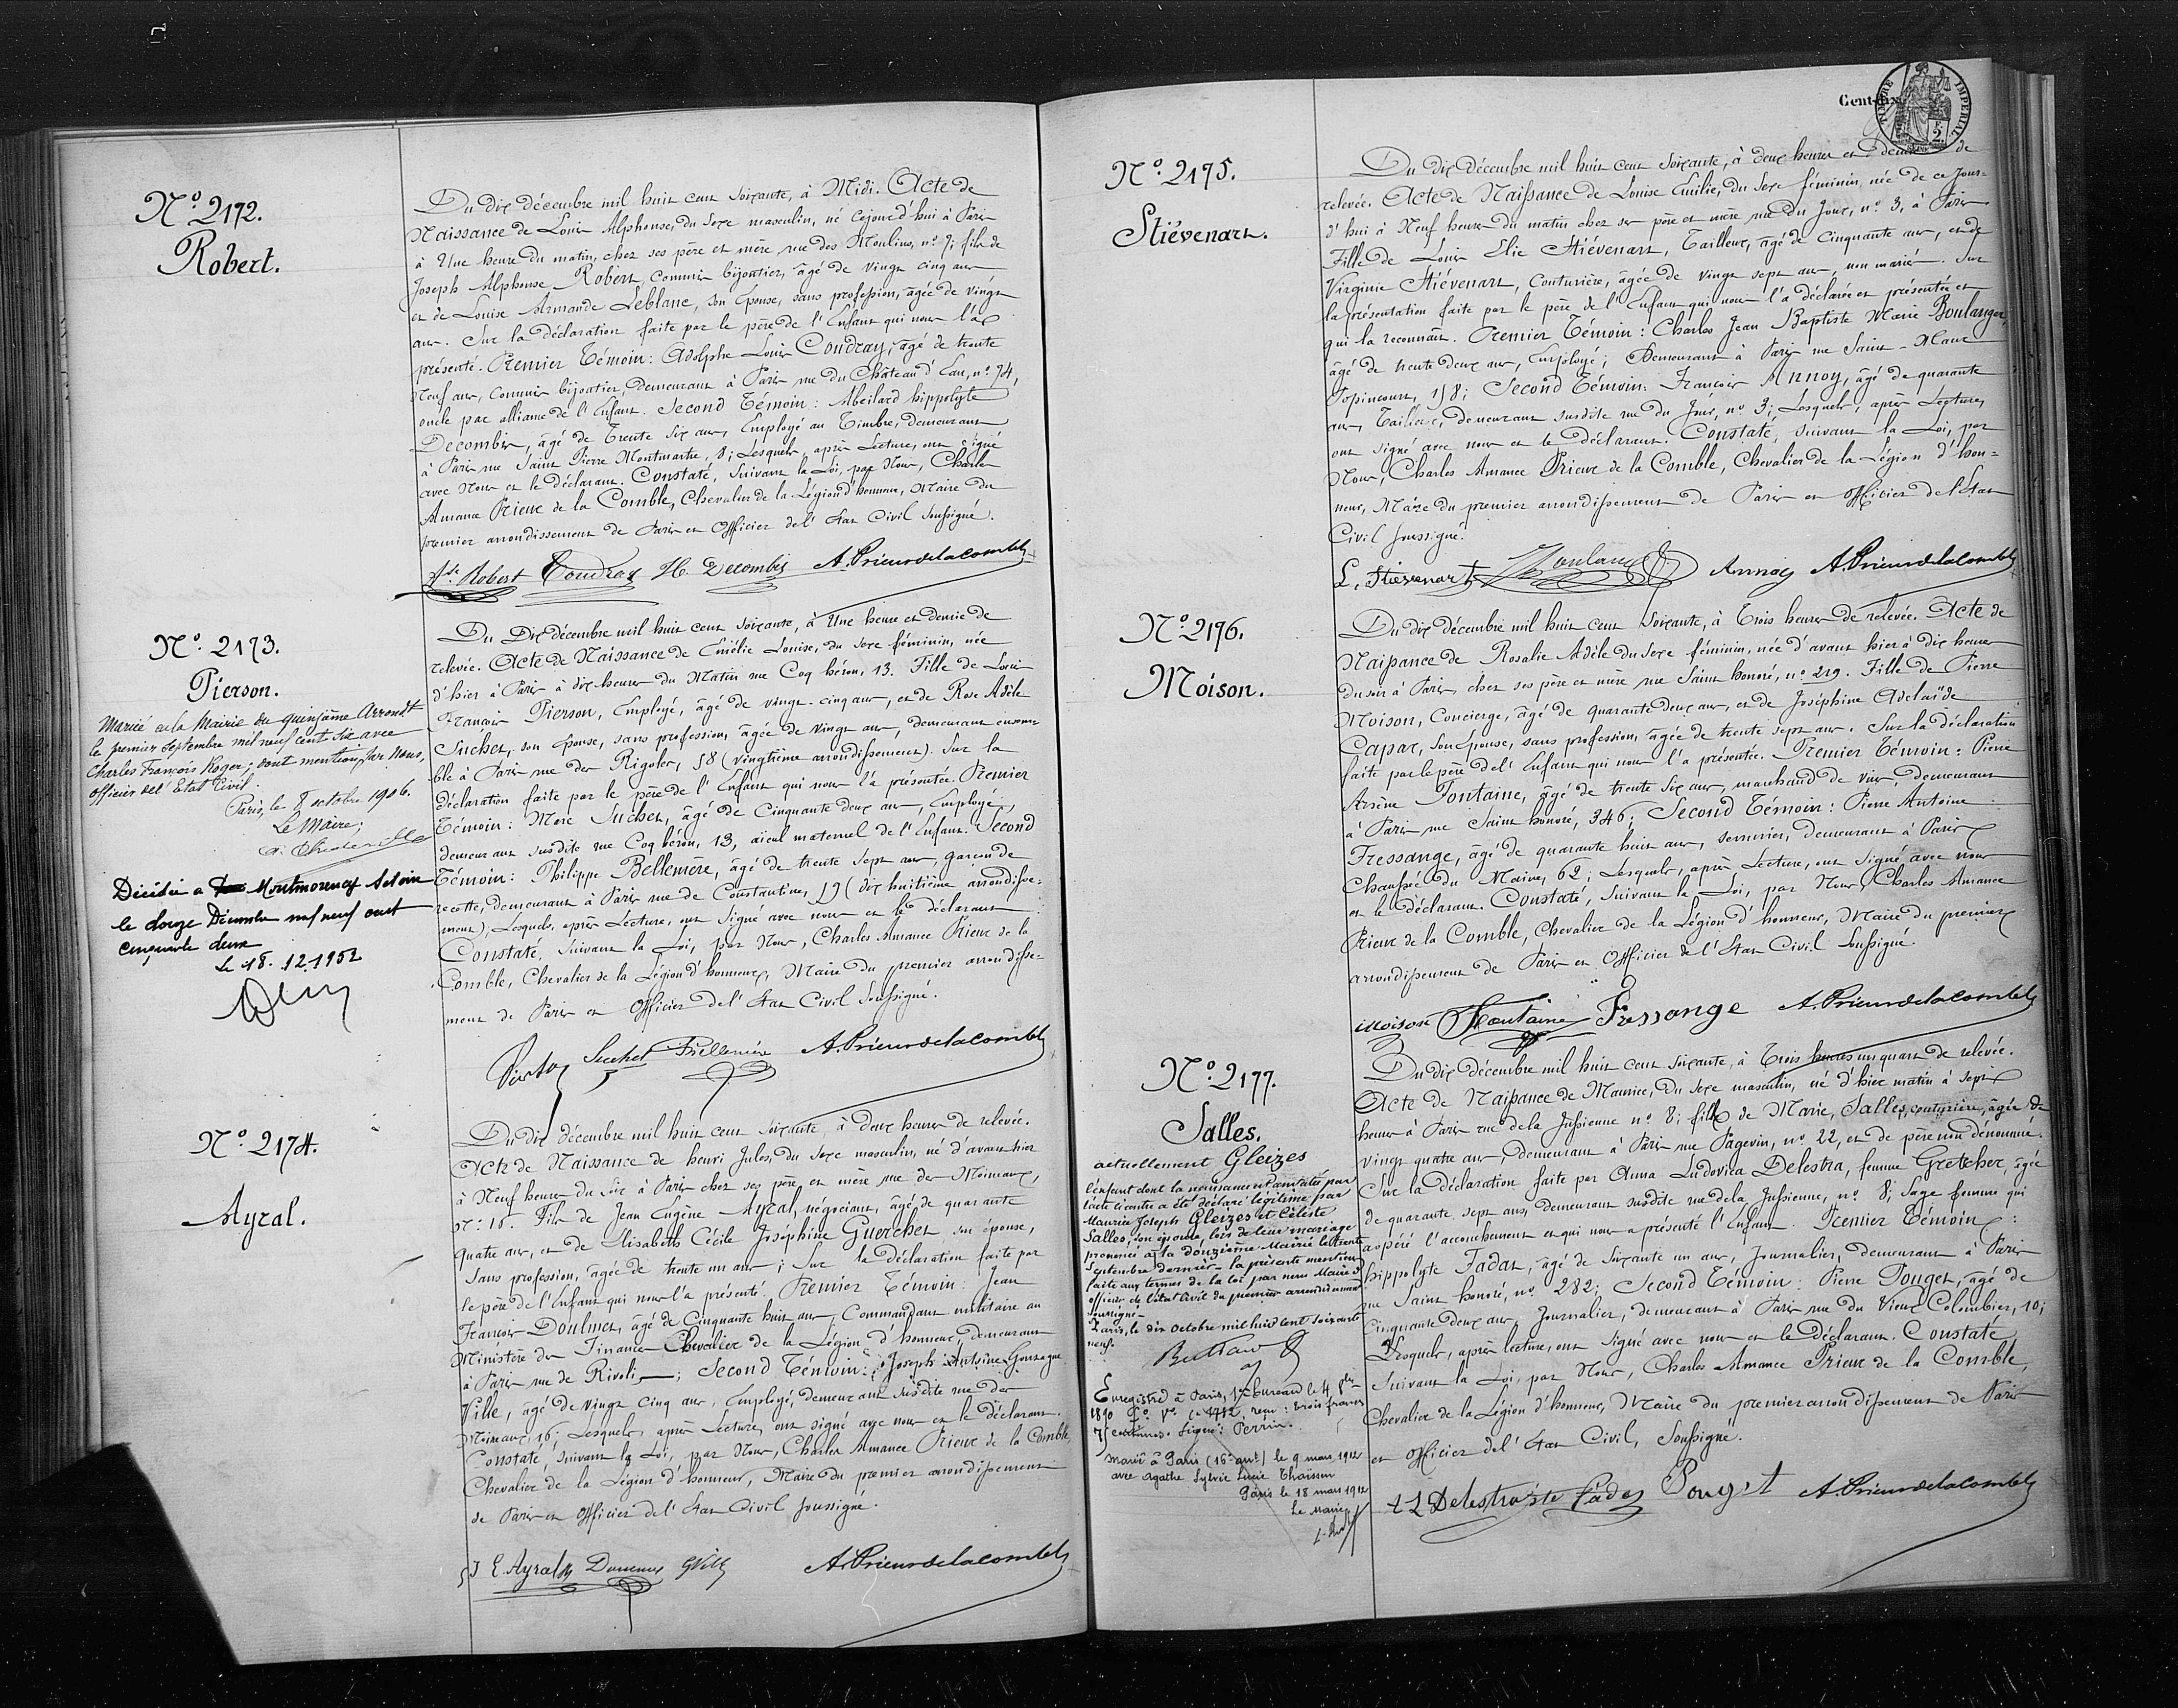 N.o 2172.
Robert.
Du dix décembre mil huit cent soixante, à Midi. Acte de
Naissance de Louis Alphonse, du sexe masculin, né cejourd'hui à Paris
à Une heure du matin, chez ses père et mère, rue des Moulins, n.o 9; fils de
Joseph Alphonse Robert, commis bijoutier, âgé de vingt cinq ans,
et de Louise Armande Leblanc, son épouse, sans profession, âgée de vingt
ans. Sur la déclaration faite par le père de l'Enfant qui nous l'a
présenté. Premier Témoin: Adolphe Louis Coudray, âgé de trente
neuf ans, commis bijoutier, demeurant à Paris rue du Château d'Eau, n.o 74,
oncle par alliance de l'Enfant. Second Témoin: Abeilard hippolyte
Decombis, âgé de Trente six ans, Employé au Timbre, demeurant
à Paris rue Saint Pierre Montmartre, 8; Lesquels, après Lecture, ont signé
avec Nous et le déclarant. Constaté, Suivant la Loi, par Nous, Charles
Amance Prieur de la Comble, Chevalier de la Légion d'honneur, Maire du
premier arrondissement de Paris et Officier de l'Etat Civil Soussigné.
Robert Coudray H. Decombis A. Prieurdelacomble
N.o 2173.
Pierson.
Mariée en la Mairie du quinzième Arrondt
le premier Septembre mil neuf cent six avec
Charles François Roger; dont mention par Nous,
officier de l'Etat Civil.
Paris, le 8 octobre 1906.
Le Maire;
Décédée a Montmorency
le douze Décembre mil neuf cent
cinquante deux
Le 18.12.1952
Du Dix décembre mil huit cent soixante, à Une heure et demie de
relevée. Acte de Naissance de Emélie Louise, du sexe féminin, née
d'hier à Paris à dix heures du Matin rue Coq héron, 13. Fille de Louis
François Pierson, Employé, âgé de vingt-cinq ans, et de Rose Adèle
Suchet, son épouse, sans profession, âgée de vingt ans, demeurant ensem-
ble à Paris rue des Rigoles, 58 (vingtième arrondissement). Sur la
déclaration faite par le père de l'Enfant qui nous l'a présentée. Premier
Témoin: Marc Suchet, âgé de Cinquante deux ans, Employé,
demeurant susdite rue Coq héron, 13, aïeul maternel de l'Enfant. Second
Témoin: Philippe Bellemère, âgé de trente sept ans, garçon de
recette, demeurant à Paris rue de Constantine, 19 (dix huitième arrondisse-
ment); Lesquels, après Lecture, ont Signé avec nous et le déclarant
Constaté, Suivant la Loi, par Nous, Charles Amance Prieur de la
Comble, Chevalier de la Légion d'honneur, Maire du premier arrondisse-
ment de Paris et Officier de l'Etat Civil Soussigné.
Pierson Suchet Bellemère A. Prieurdelacomble
N.o 2174.
Ayral.
Du dix décembre mil huit cent soixante, à deux heures de relevée.
Acte de Naissance de henri Jules, du sexe masculin, né d'avant hier
à Neuf heures du soir à Paris chez ses père et mère rue des Moineaux,
n.o 16. Fils de Jean Eugène Ayral, négociant, âgé de quarante
quatre ans, et de Elisabeth Cécile Joséphine Guerchet son épouse,
Sans profession, âgée de trente un ans; Sur la déclaration faite par
le père de l'Enfant qui nous l'a présenté. Premier Témoin: Jean
François Doulmet, âgé de Cinquante huit ans, Commandant militaire au
Ministère des Finances Chevalier de la Légion d'honneur, demeurant
à Paris rue de Rivoli; Second Témoin: Joseph Antoine Gonzague
Ville, âgé de vingt cinq ans, Employé, demeurant susdite rue des
Moineaux, 16; Lesquels, après Lecture, ont signé avec nous et le déclarant.
Constaté, Suivant la Loi, par Nous, Charles Amance Prieur de la Comble,
Chevalier de la Légion d'honneur, Maire du premier arrondissement
de Paris et Officier de l'Etat Civil soussigné.
J E. Ayral GVille A. Prieurdelacomble
Cent-dix
TIMBRE IMPERIAL
2.
N.o 2175.
Stiévenart.
Du dix Décembre mil huit cent soixante, à deux heures et demie de
relevée. Acte de Naissance de Louise Emilie, du sexe féminin, née de ce jour-
d'hui à Neuf heures du matin chez ses père et mère rue du Jour, n.o 3, à Paris.
Fille de Louis Elie Stiévenart, Tailleur, âgé de Cinquante ans, et de
Virginie Stiévenart, Couturière, âgée de vingt sept ans, non mariés. Sur
la présentation faite par le père de l'Enfant qui nous l'a déclarée et présentée et
qui la reconnait. Premier Témoin: Charles Jean Baptiste Marie Boulanger,
âgé de trente deux ans, Employé; Demeurant à Paris rue Saint-Maur
Popincourt, 158; Second Témoin: François Annoy, âgé de quarante
ans, Tailleur, demeurant susdite rue du Jour, n.o 3; Lesquels, après Lecture,
ont signé avec nous et le déclarant. Constaté, suivant la Loi, par
Nous, Charles Amance Prieur de la Comble, Chevalier de la Légion d'hon-
neur, Maire du premier arrondissement de Paris et Officier de l'Etat
Civil soussigné.
L. Stievenart Boulanger Annoy A. Prieurdelacomble
N.o 2176.
Moison.
Du dix décembre mil huit cent soixante, à Trois heures de relevée. Acte de
Naissance de Rosalie Adèle du sexe féminin, née d'avant hier à dix heures
du soir à Paris, chez ses père et mère rue Saint honoré, n.o 219. Fille de Pierre
Moison, Concierge, âgé de quarante deux ans, et de Joséphine Adelaïde
Capar, son Epouse, sans profession, âgée de trente sept ans. Sur la déclaration
faite par le père de l'Enfant qui nous l'a présentée. Premier Témoin: Pierre
Arsène Fontaine, âgé de trente six ans, marchand de vins, demeurant
à Paris rue Saint honoré, 346; Second Témoin: Pierre Antoine
Fressange, âgé de quarante huit ans, serrurier, demeurant à Paris
Chaussée du Maine, 62; Lesquels, après Lecture, ont Signé avec nous
et le déclarant. Constaté, Suivant la Loi, par Nous, Charles Amance
Prieur de la Comble, Chevalier de la Légion d'honneur, Maire du premier
arrondissement de Paris et Officier de l'Etat Civil Soussigné.
Moison Fontaine Fressange A. Prieurdelacomble
N.o 2177.
Salles.
actuellement Gleizes
l'enfant dont la naissance est constatée par
l'acte ci contre a été déclaré légitime par
Maurice Joseph Gleizes et Céleste
Salles, son épouse, lors de leur mariage
prononcé à la douzième Mairie le trente
Septembre dernier - la présente mention
faite aux termes de la loi par nous Maire et
officier de l'état civil du premier arrondissement
soussigné -
Paris, le dix octobre mil huit cent soixante
neuf.
Enregistré à Paris, 1er bureau le 4 8bre
1870 reçu: trois francs
75 centimes. Signé: Perrin.
Marié à Paris (16e arrt) le 9 mars 1912
avec Agathe Sylvie Lucie Thaïssen
Paris le 18 mars 1912
Le Maire
Du dix décembre mil huit cent soixante, à Trois heures un quart de relevée.
Acte de Naissance de Maurice, du sexe masculin, né d'hier matin à sept
heures à Paris rue de la Jussienne n.o 8; fils de Marie, Salles, couturière, âgée de
vingt quatre ans, demeurant à Paris rue Pagevin, n.o 22, et de père non dénommé.
Sur la déclaration faite par Anna Ludovica Delestra, femme Gretcher, âgée
de quarante sept ans, demeurant susdite rue de la Jussienne, n.o 8; Sage femme qui
a opéré l'accouchement et qui nous a présenté l'Enfant. Premier Témoin:
hippolyte Fadat, âgé de soixante un ans, Journalier, demeurant à Paris
rue Saint honoré, n.o 282; Second Témoin: Pierre Pouget, âgé de
Cinquante deux ans, Journalier, demeurant à Paris rue du Vieux Colombier, 10;
Lesquels, après lecture, ont signé avec nous et le déclarant. Constaté,
Suivant la Loi, par Nous, Charles Amance Prieur de la Comble,
Chevalier de la Légion d'honneur, Maire du premier arrondissement de Paris
et Officier de l'Etat Civil, Soussigné.
Delestra Pouget A. Prieurdelacomble